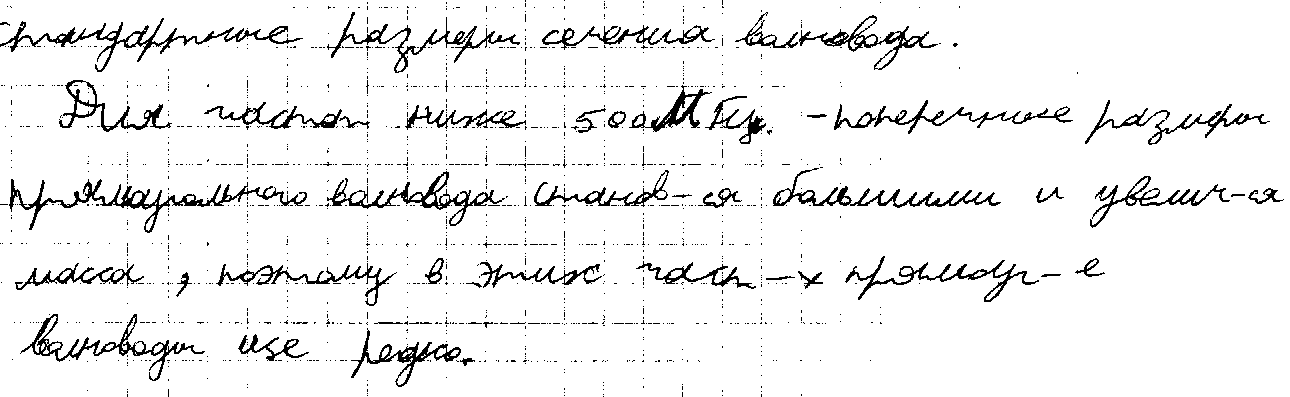 стандартные размеры сечения волновода.
Для частот ниже 500 МГц. - поперечные размеры
прямоугольного волновода станов-ся большими и увелич-ся
масса, поэтому в этих част-х прямоуг-е
волноводы use редко.